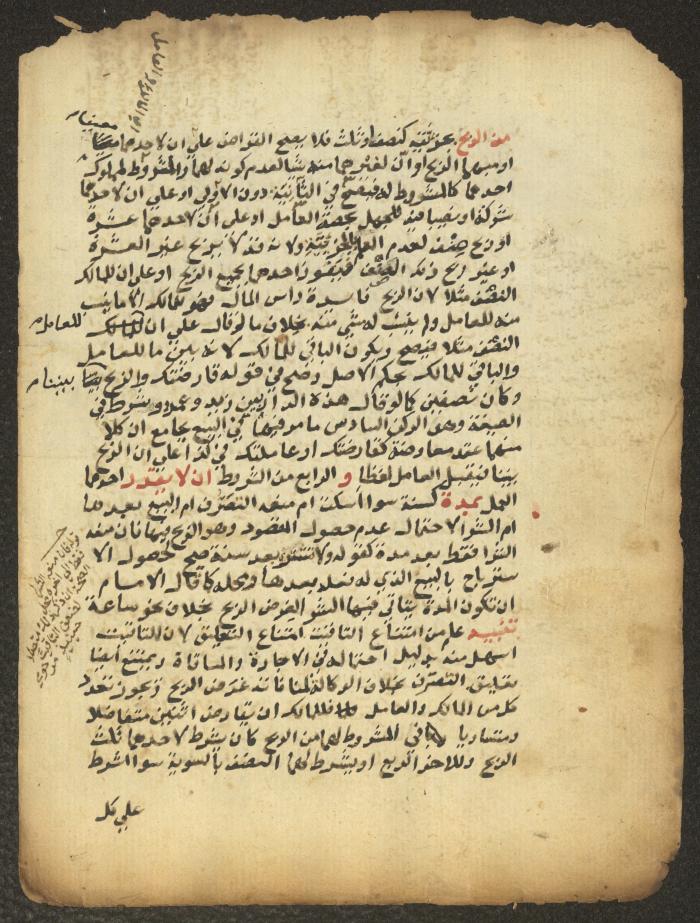 من الربح بجزئية كنصف او ثلث فلا يصح القراض علي ان لاحدهما معينا
او مبهما الربح او ان لغيرهما منه شيا لعدم كونه لهما والمشروط لمملوك
احدهما كالمشروط له فيصح في الثانية دون الاولي او علي ان لاحدهما
شركة او نصيبا فيه للجهل بحصة العامل او علي ان لاحدهما عشرة
او ربح صنف لعدم العلم بالجزئية ولانه قد لا يربح غير العشرة
او غير ربح ذلك الصنف فيفوز احدهما بجميع الربح او علي ان للمالك
النصف مثلا لان الربح فايدة راس المال فهو للمالك الا ما ينسب
منه للعامل ولم ينسب له شي منه بخلاف ما لو قال علي ان للعامل
النصف مثلا فيصح ويكون الباقي للمالك لانه بين ما للعامل
والباقي للمالك بحكم الاصل وصح في قوله قارضتك والربح بيننا
وكان نصفين كما لو قال هذه الدار بين زيد وعمرو ويشرط في
الصيغة وهو الركن السادس ما مر فيها في البيع بجامع ان كلا
منهما عقد معاوضة كقارضتك او عاملتك في كذا علي ان الربح
بيننا فيقبل العامل لفظا و الرابع من الشروط ان لا يقدر احدهما
العمل بمدة كسنة سوا اسكت ام منعه التصرف ام البيع بعدها
ام الشرا لاحتمال عدم حصول المقصود وهو الربح فيها فان منعه
الشرا فقط بعد مدة كقوله ولا تشتر بعد سنة صح لحصول الا
سترباح بالبيع الذي له فعله بعدها ومحله كما قال الامام
ان تكون المدة يتاتي فيها الشرا لغرض الربح بخلاف نحو ساعة
تنبيه علم من امتناع التاقيت امتناع التعليق لان التاقيت
اسهل منه بدليل احتماله في الاجارة والمساقاة ويمتنع ايضا
تعليق التصرف بخلاف الوكالة لمنافاته غرض الربح ويجوز تعدد
كل من المالك والعامل فللمالك ان يقارض اثنين متفاضلا
ومتساويا في المشروط لهما من الربح كان يشرط لاحدهما ثلث
الربح وللاخر الربع او يشرط لهما النصف بالسوية سوا شرط
علي كل